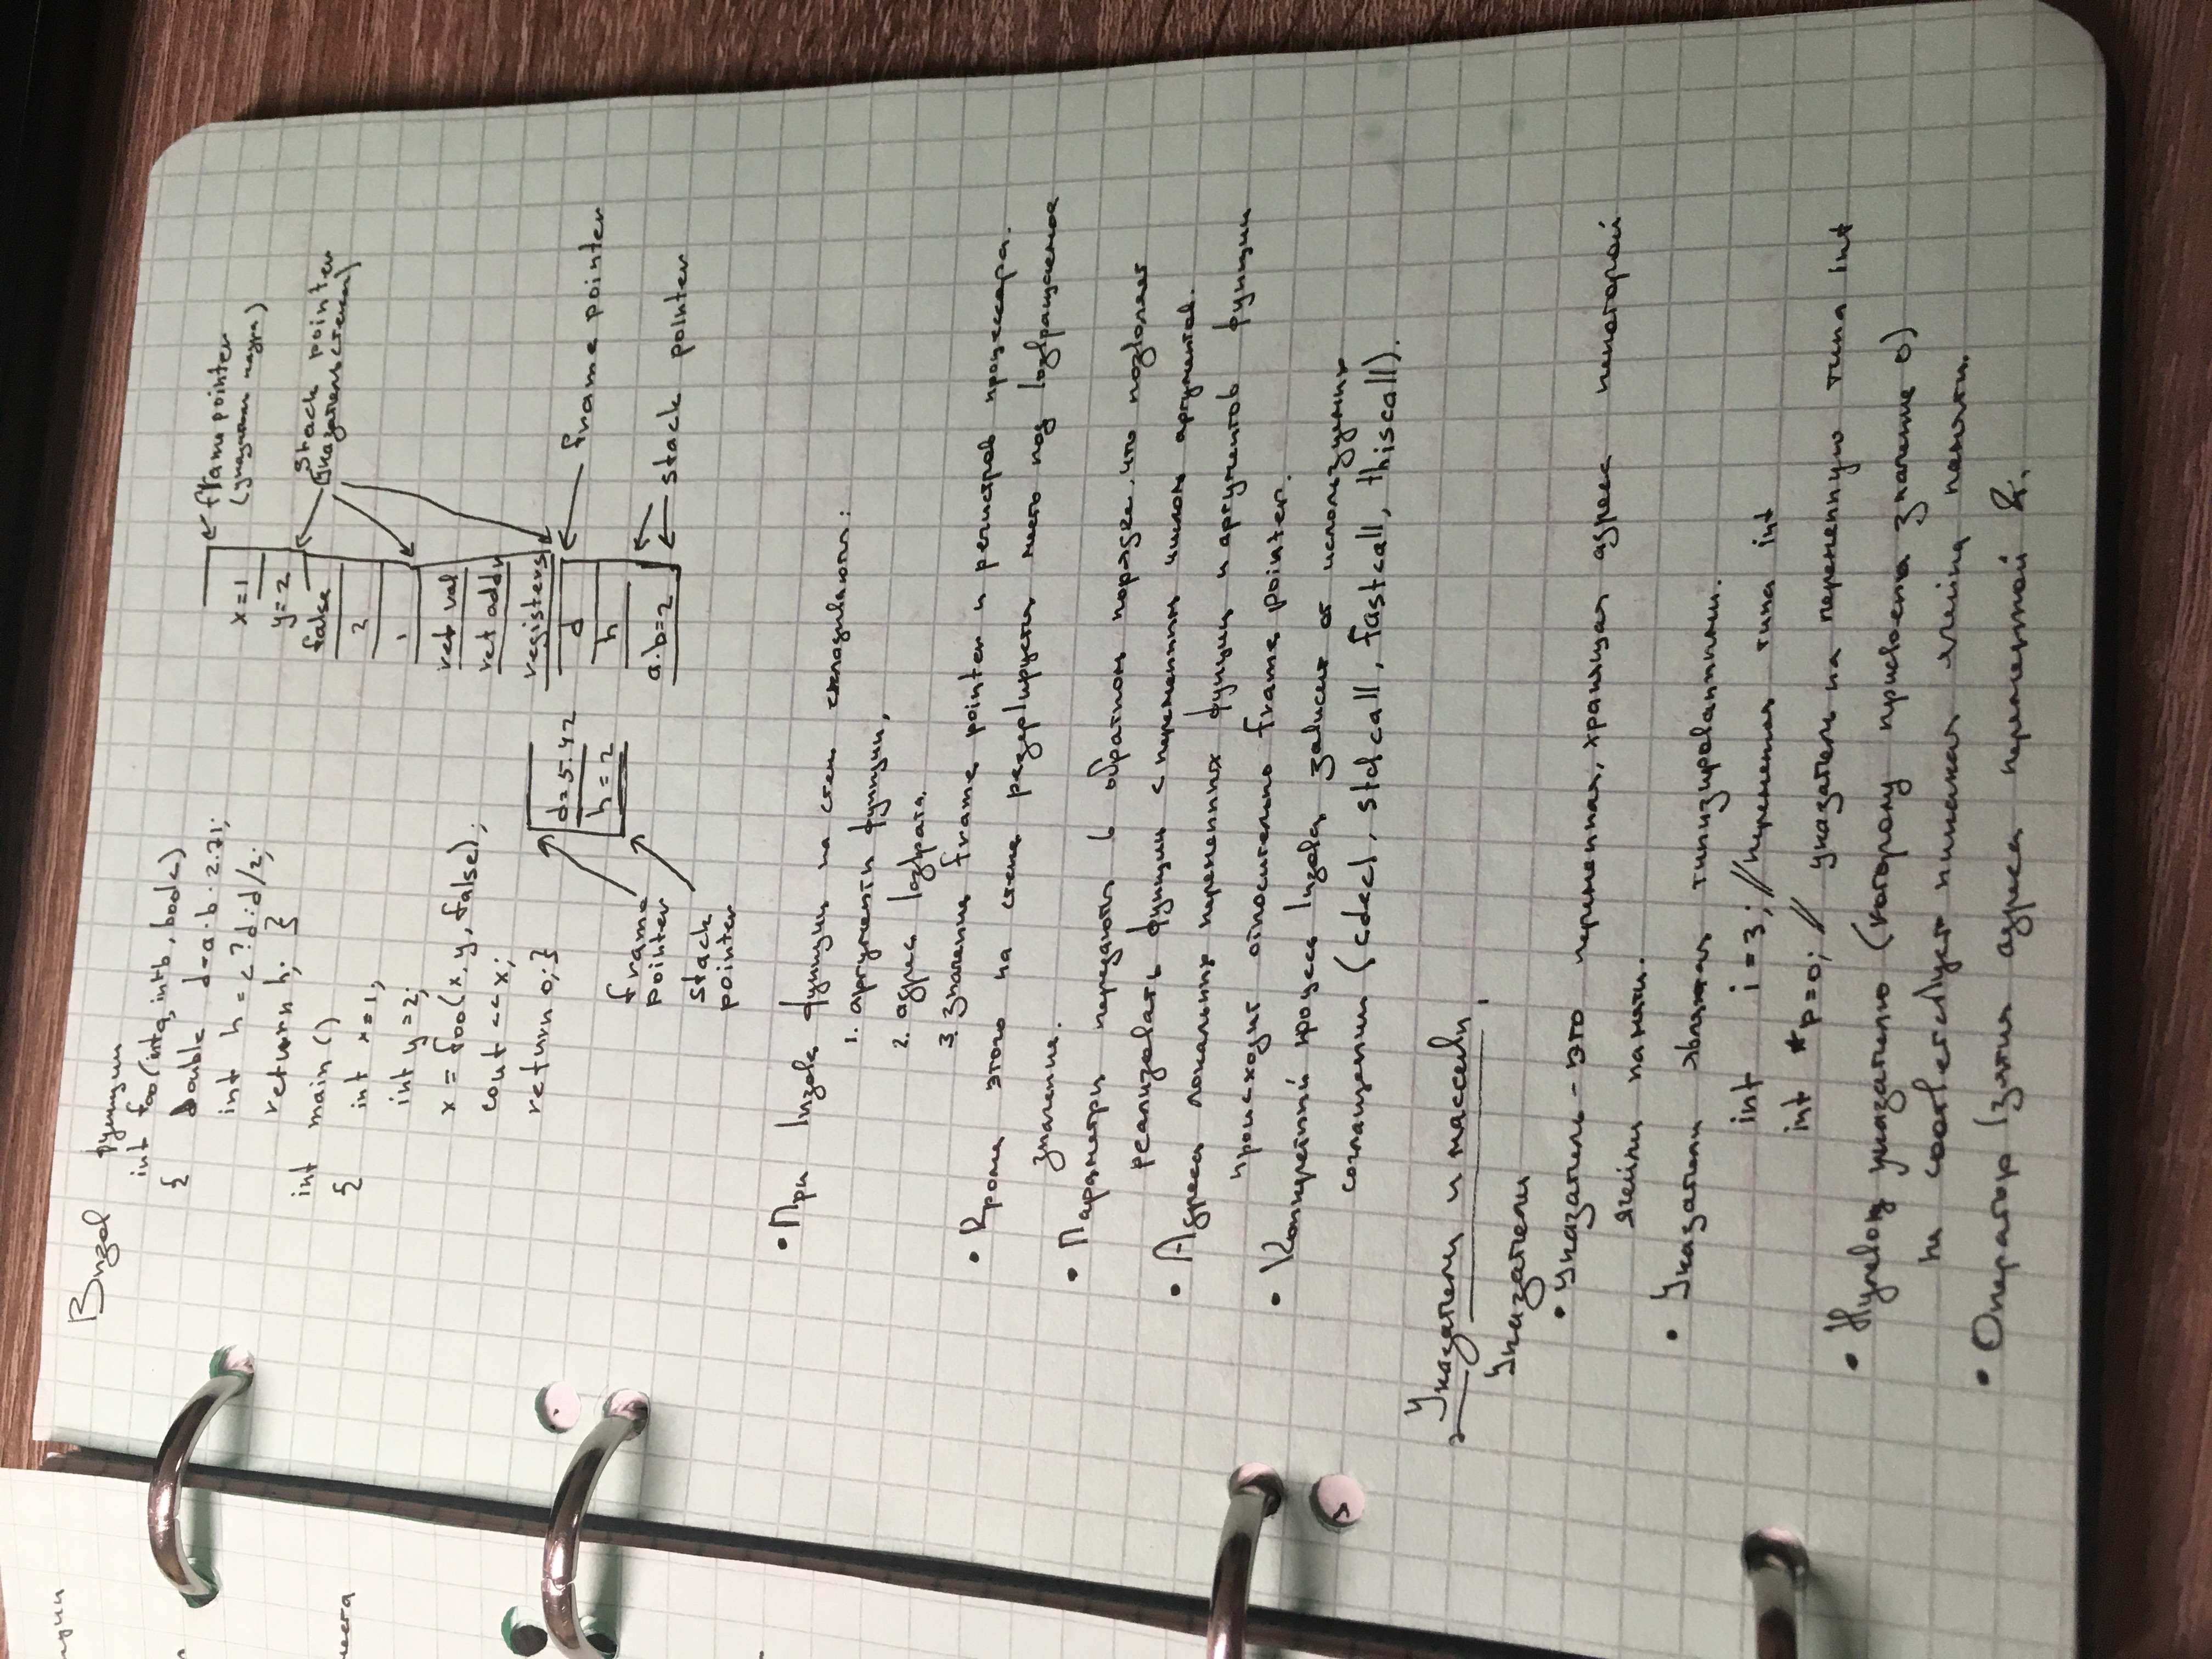 Вызов функции
int foo(int a, int b, bool c)
{ double d=a·b·2.71;
int h = c ? d : d/2;
return h; }
int main ()
{ int x=1;
int y=2;
x = foo(x, y, false);
cout << x;
return 0; }
frame pointer
(указатель кадра)
x=1
y=2
stack pointer
(указатель стека)
false
2
1
ret val
ret addr
registers
d=5.42
h=2
d
h
a·b=2
frame pointer
stack pointer
frame
pointer
stack
pointer
• При вызове функции на стек складываются:
1. аргументы функции,
2. адрес возврата.
3. значение frame pointer и регистров процессора.
• Кроме этого на стеке резервируется место под возвращаемое
значение.
• Параметры передаются в обратном порядке, что позволяет
реализовать функции с переменным числом аргументов.
• Адреса локальных переменных функции и аргументов функции
происходит относительно frame pointer.
• Конкретный процесс вызова зависит от используемых
соглашении (cdecl, stdcall, fastcall, thiscall).
Указатели и массивы
Указатели
• Указатель - это переменная, хранящая адреса некоторой
ячейки памяти.
• Указатели являются типизированными.
int i = 3; // переменная типа int
int *p=0; // указатель на переменную типа int
• Нулевому указателю (которому присвоено значение 0)
не соответствует никакая ячейка памяти.
• Оператор взятия адреса переменной &.
нции